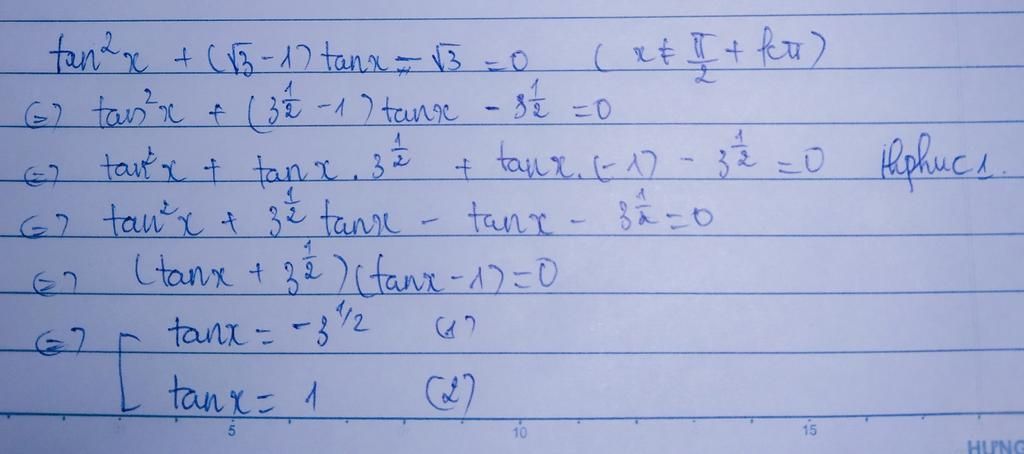 tan²x + (√3 - 1) tanx - √3 = 0 ( x ≠ π/2 + kπ )
<=> tan²x + (3^(1/2) - 1) tanx - 3^(1/2) = 0
<=> tan²x + tanx . 3^(1/2) + tanx . (-1) - 3^(1/2) = 0 Hphuc1.
<=> tan²x + 3^(1/2) tanx - tanx - 3^(1/2) = 0
<=> (tanx + 3^(1/2)) (tanx - 1) = 0
<=> [ tanx = -3^(1/2) (1)
tanx = 1 (2)
5 10 15
HƯNG